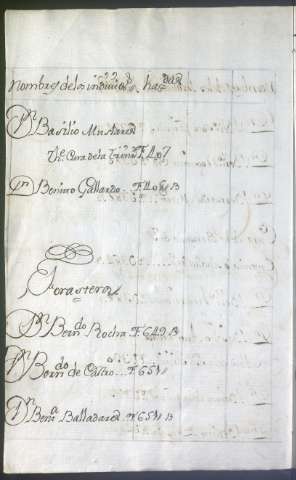 Nombres de los individ.s haz.das
Dn Basilio Mustares
Vte Cura de la
Dn Benino Gallardo
Forasteros
Dn Bern.do Rocha F. 649 B
Dn Bern.do de Castro F. 651
Dn Bena. Balladares F. 651 B